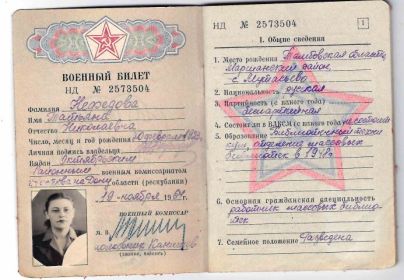 ВОЕННЫЙ БИЛЕТ
НД № 2573504
Фамилия
Имя Татьяна
Отчество Николаевна
Число, месяц и год рождения
Личная подпись владельца
Выдан Октябрьским
районным военным комиссариатом
области (республики)
19 ноября 1964
ВОЕННЫЙ КОМИССАР
М. П.
НД № 2573504
1
I. Общие сведения
1. Место рождения Тамбовская область
район
с.
2. Национальность русская
3. Партийность (с какого года)
беспартийная
4. Состоит ли в ВЛКСМ (с какого года) не состоит
5. Образование Библиотечный техни
кум, отделение массовых
библиотек в
6. Основная гражданская специальность
работник массовых библио
тек
7. Семейное положение Разведена